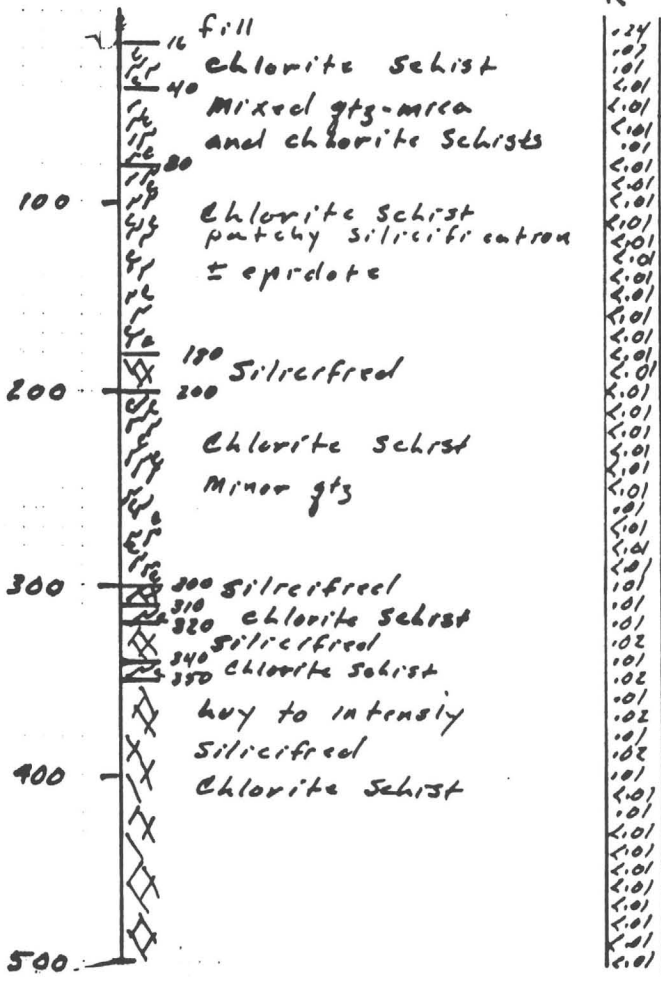 16 fill
Chlorite Schist
40
Mixed qtz-mica
and chlorite Schists
80
100
Chlorite Schist
patchy silicification
± epidote
180
Silicified
200
200
Chlorite Schist
Minor qtz
300
300 Silicified
310
Chlorite Schist
320
Silicified
340
Chlorite Schist
350
hvy to intensly
Silicified
400
Chlorite Schist
500
.24
.07
.01
<.01
<.01
<.01
<.01
<.01
<.01
<.01
<.01
<.01
<.01
<.01
<.01
<.01
<.01
<.01
<.01
<.01
<.01
<.01
<.01
<.01
<.01
<.01
<.01
<.01
<.01
.01
.01
.01
.02
.01
.02
.01
.02
.01
.02
.01
<.01
.01
<.01
<.01
<.01
<.01
<.01
<.01
<.01
<.01